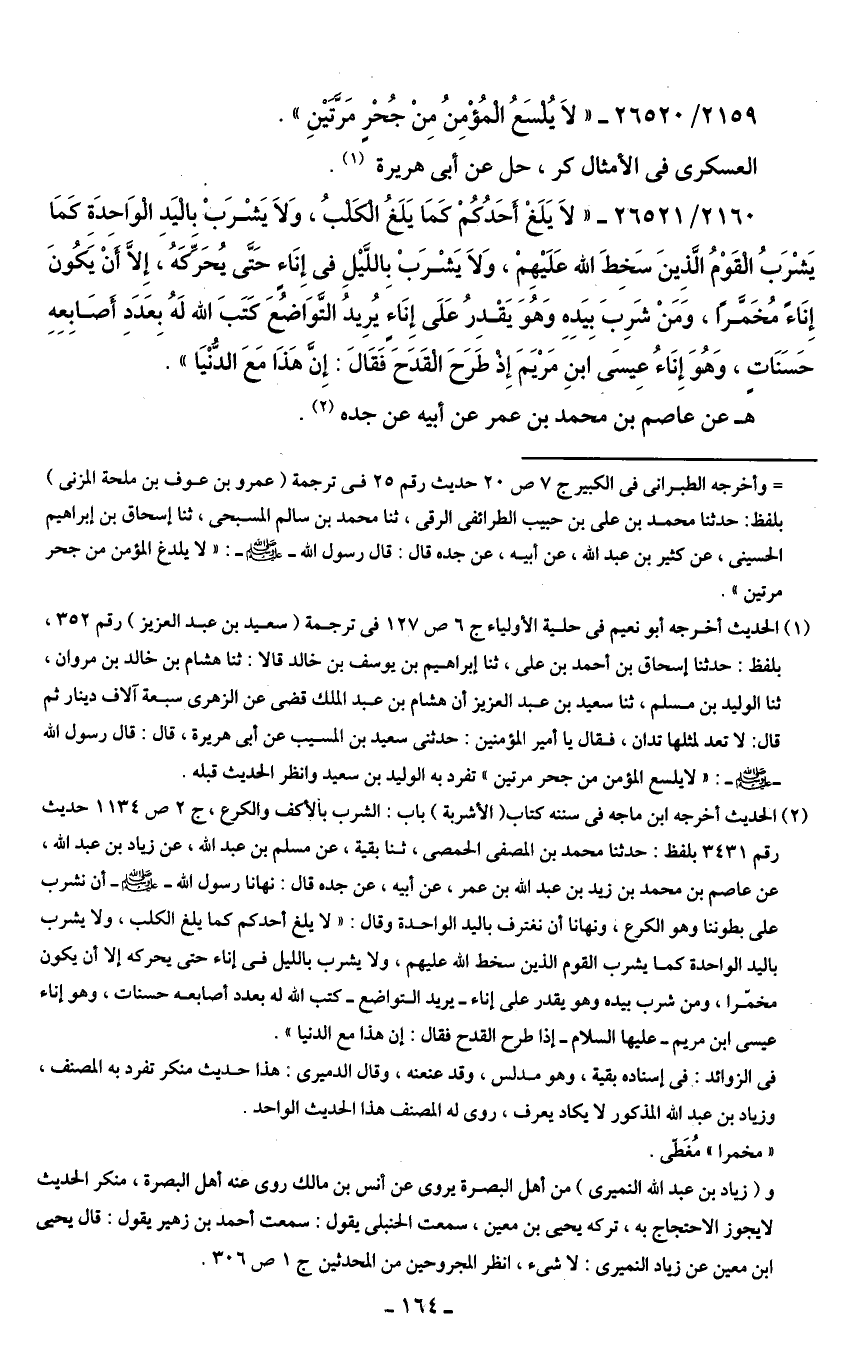 ٢١٥٩/ ٢٦٥٢٠ ـ « لاَ يُلْسَعُ الْمُؤْمِنُ مِنْ جُحْرٍ مَرَّتَيْنِ » .
العسكرى فى الأمثال كر ، حل عن أبى هريرة (١) .
٢١٦٠/ ٢٦٥٢١ ـ « لاَ يَلَغْ أَحَدُكُمْ كَمَا يَلَغُ الْكَلْبُ ، وَلاَ يَشْرَبْ بِالْيَدِ الْوَاحِدَةِ كَمَا
يَشْرَبُ الْقَوْمُ الَّذِينَ سَخِطَ الله عَلَيْهِمْ ، وَلاَ يَشْرَبْ بِاللَّيْلِ فِى إِنَاءٍ حَتَّى يُحَرِّكَهُ ، إِلاَّ أَنْ يَكُونَ
إِنَاءً مُخَمَّرًا ، وَمَنْ شَرِبَ بِيَدِهِ وَهُوَ يَقْدِرُ عَلَى إِنَاءٍ يُرِيدُ التَّوَاضُعَ كَتَبَ الله لَهُ بِعَدَدِ أَصَابِعِهِ
حَسَنَاتٍ ، وَهُوَ إِنَاءُ عِيسَى ابنِ مَرْيَمَ إِذْ طَرَحَ الْقَدَحَ فَقَالَ : إِنَّ هَذَا مَعَ الدُّنْيَا » .
هـ عن عاصم بن محمد بن عمر عن أبيه عن جده (٢) .
= وأخرجه الطبرانى فى الكبير ج ٧ ص ٢٠ حديث رقم ٢٥ فى ترجمة ( عمرو بن عوف بن ملحة المزنى )
بلفظ: حدثنا محمد بن على بن حبيب الطرائفى الرقى ، ثنا محمد بن سالم المسبحى ، ثنا إسحاق بن إبراهيم
الحسينى ، عن كثير بن عبد الله ، عن أبيه ، عن جده قال : قال رسول الله ـ ﷺ ـ : « لا يلدغ المؤمن من جحر
مرتين » .
(١) الحديث أخرجه أبو نعيم فى حلية الأولياء ج ٦ ص ١٢٧ فى ترجمة ( سعيد بن عبد العزيز ) رقم ٣٥٢ ،
بلفظ : حدثنا إسحاق بن أحمد بن على ، ثنا إبراهيم بن يوسف بن خالد قالا : ثنا هشام بن خالد بن مروان ،
ثنا الوليد بن مسلم ، ثنا سعيد بن عبد العزيز أن هشام بن عبد الملك قضى عن الزهرى سبعة آلاف دينار ثم
قال: لا تعد لمثلها تدان ، فقال يا أمير المؤمنين : حدثنى سعيد بن المسيب عن أبى هريرة ، قال : قال رسول الله
ـ ﷺ ـ : « لايلسع المؤمن من جحر مرتين » تفرد به الوليد بن سعيد وانظر الحديث قبله .
(٢) الحديث أخرجه ابن ماجه فى سننه كتاب( الأشربة ) باب : الشرب بالأكف والكرع ، ج ٢ ص ١١٣٤ حديث
رقم ٣٤٣١ بلفظ : حدثنا محمد بن المصفى الحمصى ، ثنا بقية ، عن مسلم بن عبد الله ، عن زياد بن عبد الله ،
عن عاصم بن محمد بن زيد بن عبد الله بن عمر ، عن أبيه ، عن جده قال : نهانا رسول الله ـ ﷺ ـ أن نشرب
على بطوننا وهو الكرع ، ونهانا أن نغترف باليد الواحدة وقال : « لا يلغ أحدكم كما يلغ الكلب ، ولا يشرب
باليد الواحدة كما يشرب القوم الذين سخط الله عليهم ، ولا يشرب بالليل فى إناء حتى يحركه إلا أن يكون
مخمّرا ، ومن شرب بيده وهو يقدر على إناء ـ يريد التواضع ـ كتب الله له بعدد أصابعه حسنات ، وهو إناء
عيسى ابن مريم ـ عليها السلام ـ إذا طرح القدح فقال : إن هذا مع الدنيا » .
فى الزوائد : فى إسناده بقية ، وهو مدلس ، وقد عنعنه ، وقال الدميرى : هذا حديث منكر تفرد به المصنف ،
وزياد بن عبد الله المذكور لا يكاد يعرف ، روى له المصنف هذا الحديث الواحد .
« مخمرا » مُغَطّى .
و ( زياد بن عبد الله النميرى ) من أهل البصرة يروى عن أنس بن مالك روى عنه أهل البصرة ، منكر الحديث
لايجوز الاحتجاج به ، تركه يحيى بن معين ، سمعت الحنبلى يقول : سمعت أحمد بن زهير يقول : قال يحيى
ابن معين عن زياد النميرى : لا شىء ، انظر المجروحين من المحدثين ج ١ ص ٣٠٦ .
ـ ١٦٤ ـ